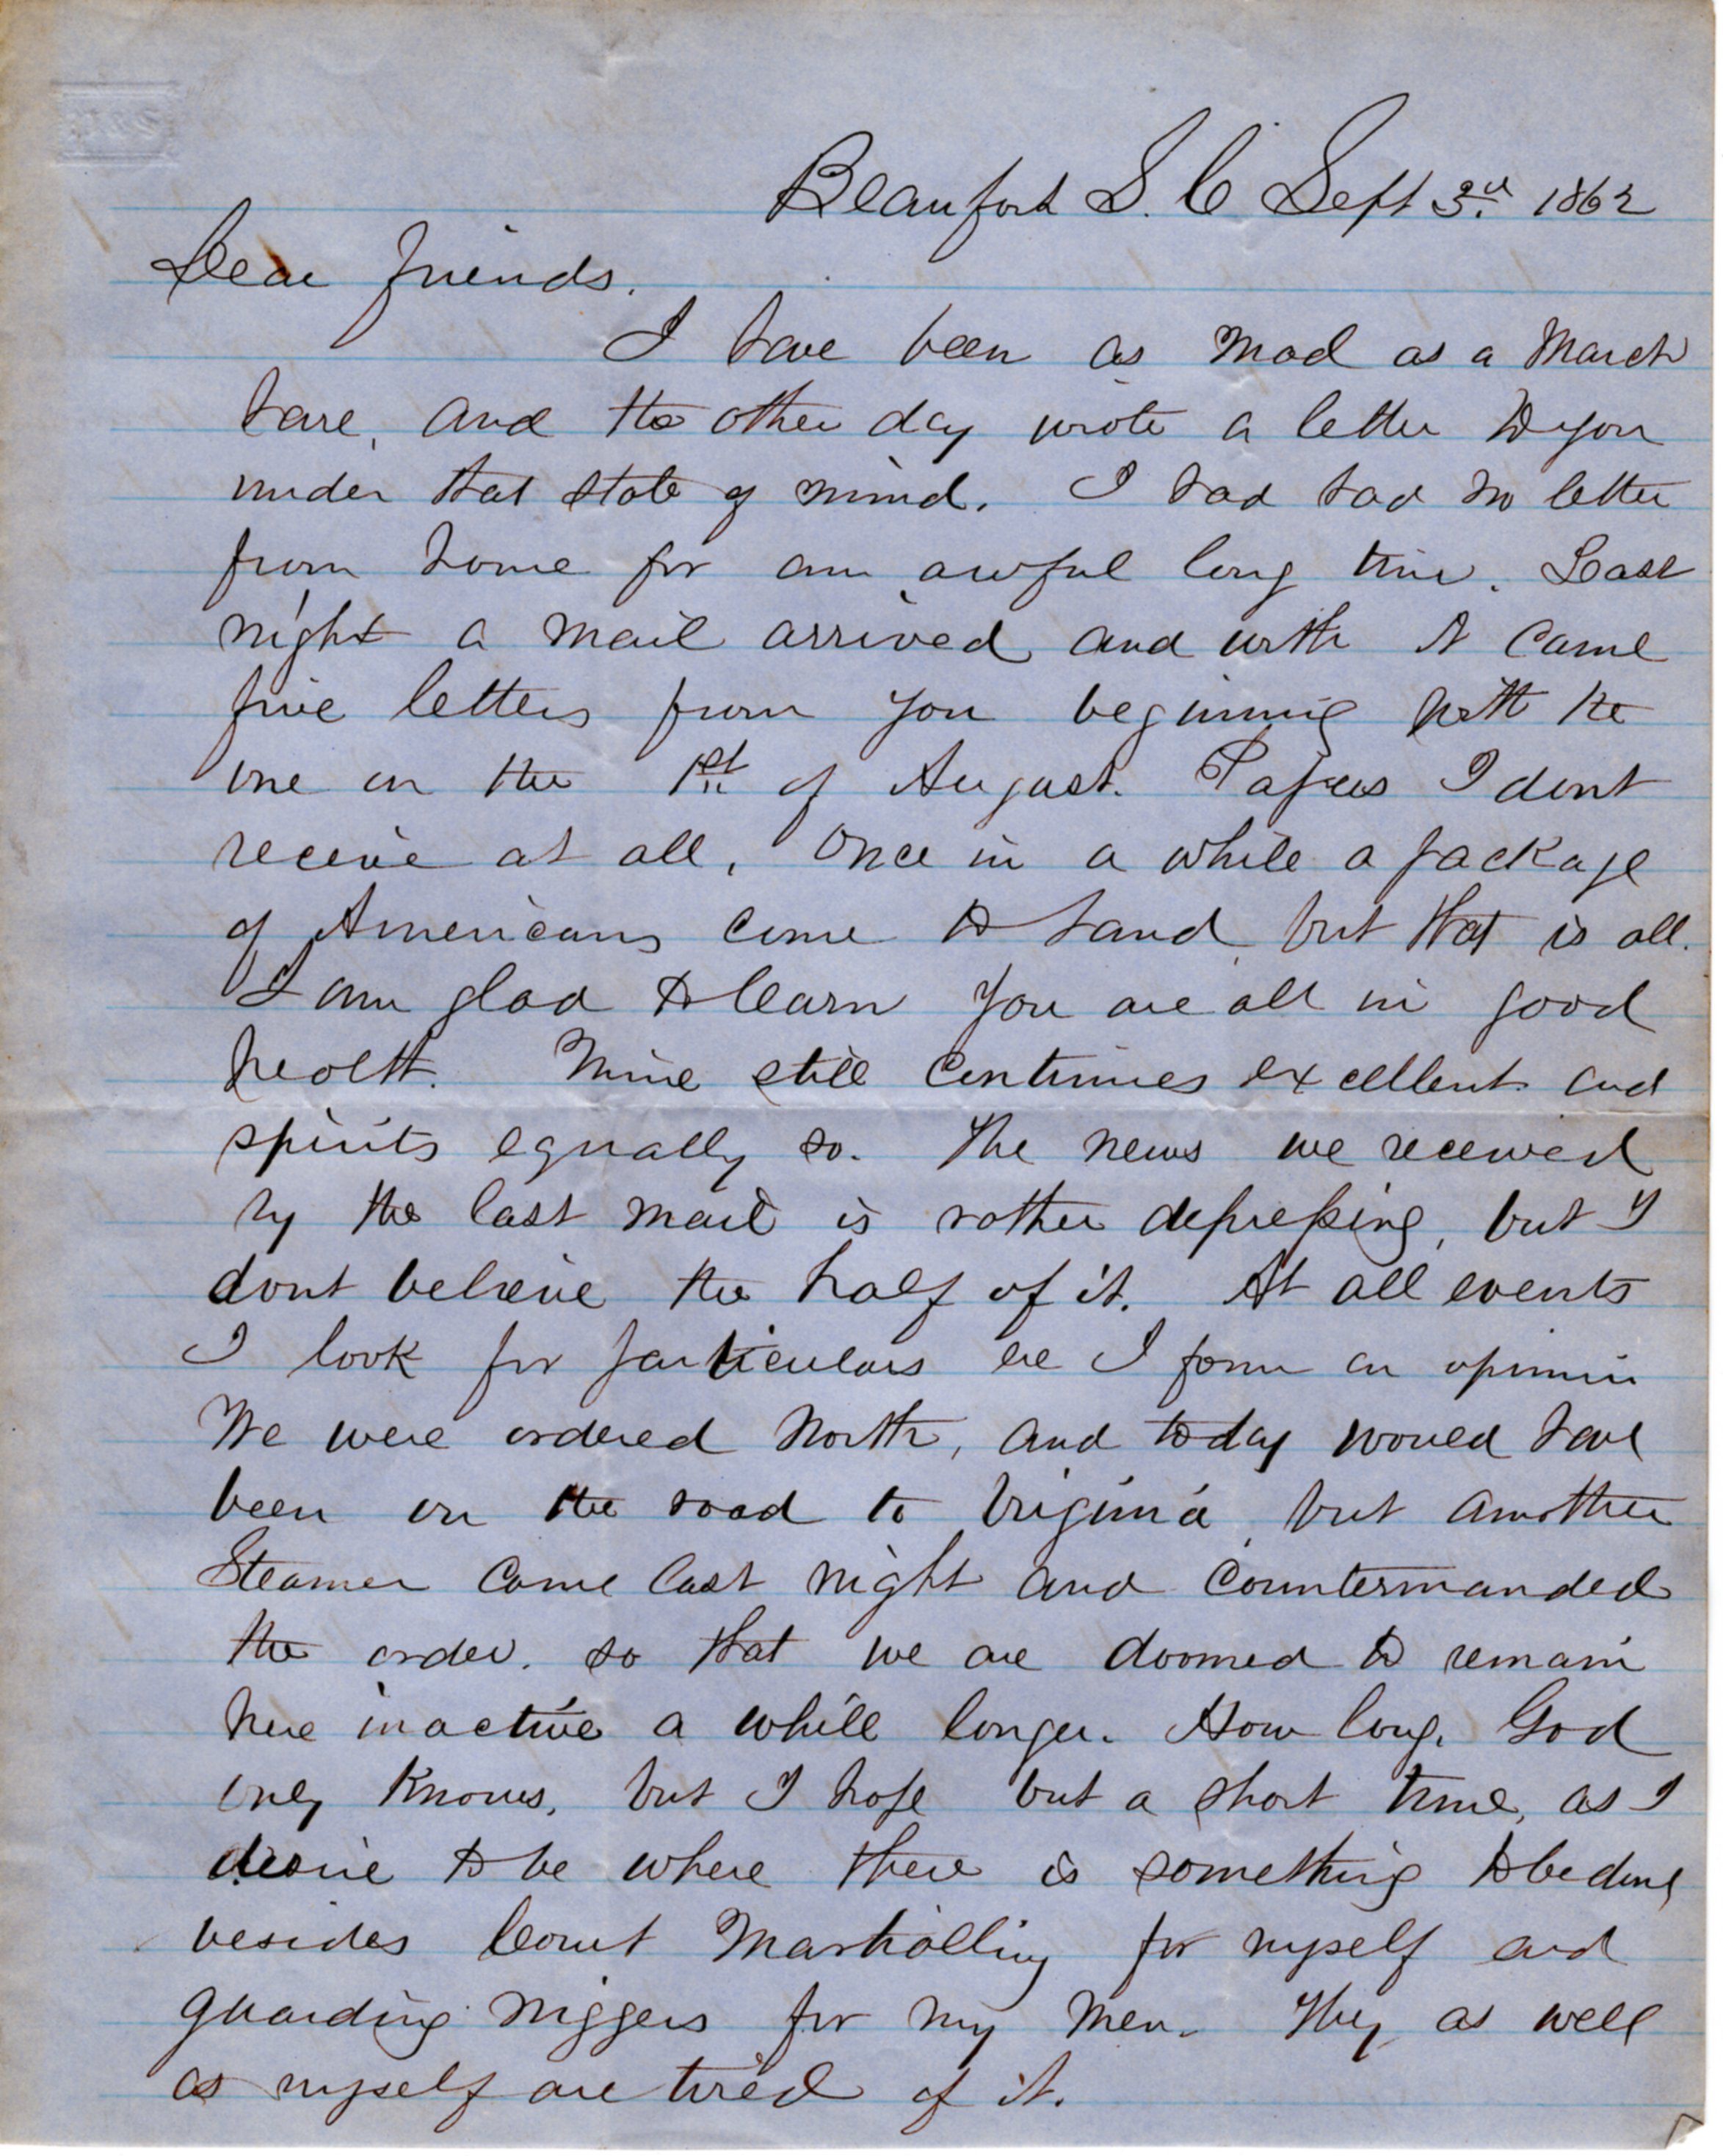 Beaufort S. C Sept 3d. 1862
Dear friends.
I have been as mad as a March
hare, and the other day wrote a letter to you
under that state of mind. I had had no letter
from home for an awful long time. Last
night a mail arrived and with it came
five letters from you beginning with the
one on the 1st of August. Papers I dont
receive at all, Once in a while a package
of Americans come to hand, but that is all.
I am glad to learn you are all in good
health. Mine still continues excellent and
spirits equally so. The news we received
by the last mail is rather depressing, but I
dont believe the half of it. At all events
I look for particulars ere I form an opinion
We were ordered North, and today would have
been on the road to Virginia, but another
Steamer came last night and countermanded
the order. so that we are doomed to remain
here inactive a while longer. How long, God
only knows, but I hope but a short time, as I
desire to be where there is something to be done
besides Court Marshalling for myself and
guarding niggers for my men. They as well
as myself are tired of it.